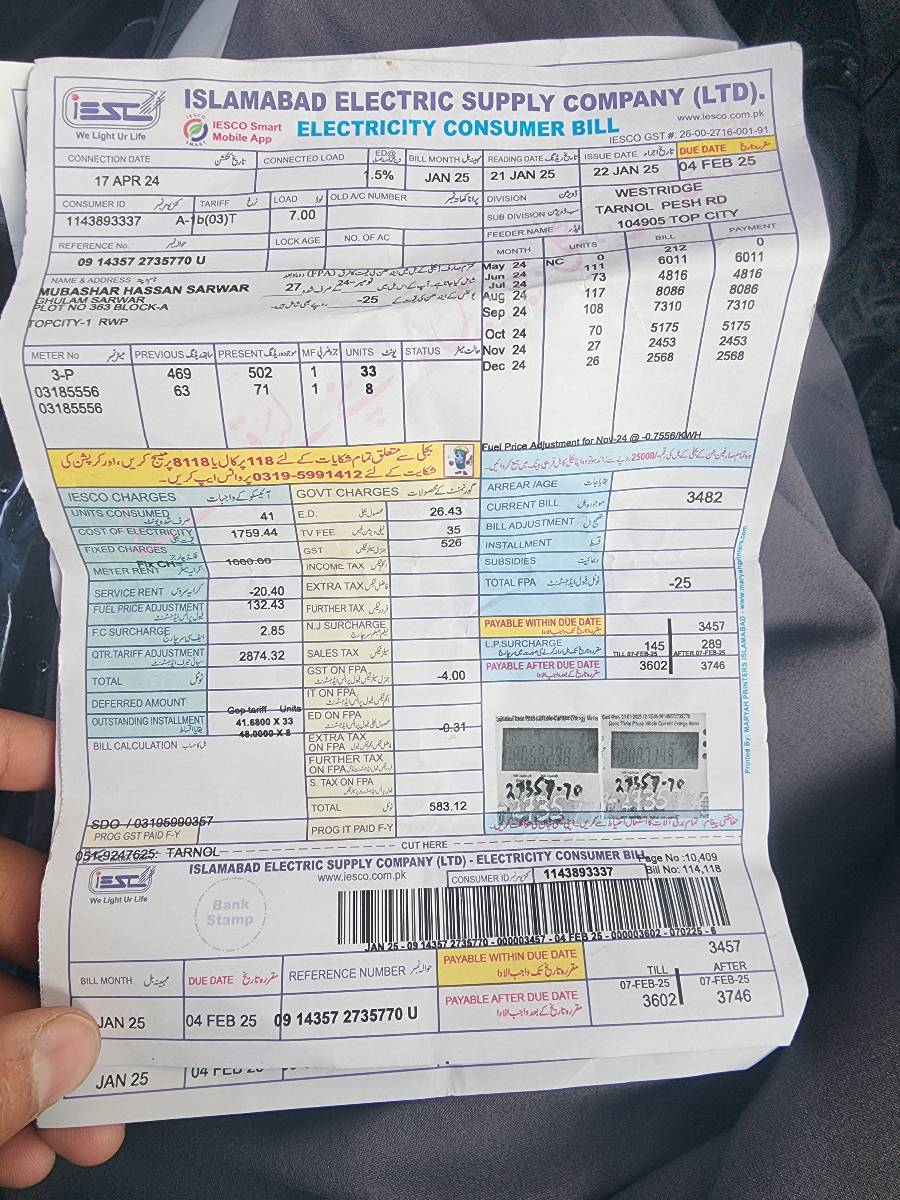 iESCO
We Light Ur Life
IESCO
SMART
IESCO Smart
Mobile App
ISLAMABAD ELECTRIC SUPPLY COMPANY (LTD).
www.iesco.com.pk
ELECTRICITY CONSUMER BILL
IESCO GST #: 26-00-2716-001-91
CONNECTION DATE CONNECTED LOAD ED@ BILL MONTH READING DATE ISSUE DATE DUE DATE
17 APR 24 1.5% JAN 25 21 JAN 25 22 JAN 25 04 FEB 25
CONSUMER ID TARIFF LOAD OLD A/C NUMBER DIVISION WESTRIDGE
1143893337 A-1b(03)T 7.00 SUB DIVISION TARNOL PESH RD
REFERENCE No. LOCK AGE NO. OF AC FEEDER NAME 104905 TOP CITY
09 14357 2735770 U
MONTH UNITS BILL PAYMENT
May 24 NC 0 212 0
Jun 24 111 6011 6011
Jul 24 73 4816 4816
Aug 24 117 8086 8086
Sep 24 108 7310 7310
Oct 24 70 5175 5175
Nov 24 27 2453 2453
Dec 24 26 2568 2568
NAME & ADDRESS
MUBASHAR HASSAN SARWAR 27
GHULAM SARWAR -25
PLOT NO 363 BLOCK-A
TOPCITY-1 RWP
METER No PREVIOUS PRESENT MF UNITS یونٹ STATUS
3-P 469 502 1 33
03185556 63 71 1 8
03185556
Fuel Price Adjustment for Nov-24 @ -0.7556/KWH
بجلی سے متعلق تمام شکایات کے لئے 118 پر کال یا 8118 پر میسج کریں، اور کرپشن کی
شکایت کے لئے 0319-5991412 پر واٹس ایپ کریں۔
IESCO CHARGES آئیسکو کے واجبات
UNITS CONSUMED 41
COST OF ELECTRICITY 1759.44
FIXED CHARGES Fix CH= 1000.00
METER RENT
SERVICE RENT -20.40
FUEL PRICE ADJUSTMENT 132.43
F.C SURCHARGE 2.85
QTR.TARIFF ADJUSTMENT 2874.32
TOTAL
DEFERRED AMOUNT Gop tariff Units
OUTSTANDING INSTALLMENT 41.6800 X 33
48.0000 X 8
BILL CALCULATION
SDO / 03195990357
PROG GST PAID F-Y
051-9247625: TARNOL
GOVT CHARGES گورنمنٹ کے محصولات
E.D. 26.43
TV FEE 35
GST 526
INCOME TAX
EXTRA TAX
FURTHER TAX
N.J SURCHARGE
SALES TAX
GST ON FPA -4.00
IT ON FPA
ED ON FPA -0.31
EXTRA TAX ON FPA
FURTHER TAX ON FPA
S. TAX ON FPA
TOTAL 583.12
PROG IT PAID F-Y
ARREAR /AGE
CURRENT BILL 3482
BILL ADJUSTMENT
INSTALLMENT قسط
SUBSIDIES
TOTAL FPA -25
PAYABLE WITHIN DUE DATE 3457
L.P.SURCHARGE 145 289
TILL 07-FEB-25 AFTER 07-FEB-25
PAYABLE AFTER DUE DATE 3602 3746
27357-70 27357-70
Printed By: MARYAH PRINTERS ISLAMABAD - www.maryahprinters.com
CUT HERE
iESCO
We Light Ur Life
ISLAMABAD ELECTRIC SUPPLY COMPANY (LTD) - ELECTRICITY CONSUMER BILL
Page No :10,409
www.iesco.com.pk
CONSUMER ID 1143893337
Bill No: 114,118
Bank
Stamp
JAN 25 - 09 14357 2735770 - 000003457 - 04 FEB 25 - 000003602 - 070225 - 6
BILL MONTH DUE DATE REFERENCE NUMBER PAYABLE WITHIN DUE DATE 3457
JAN 25 04 FEB 25 09 14357 2735770 U PAYABLE AFTER DUE DATE
TILL AFTER
07-FEB-25 07-FEB-25
3602 3746
JAN 25